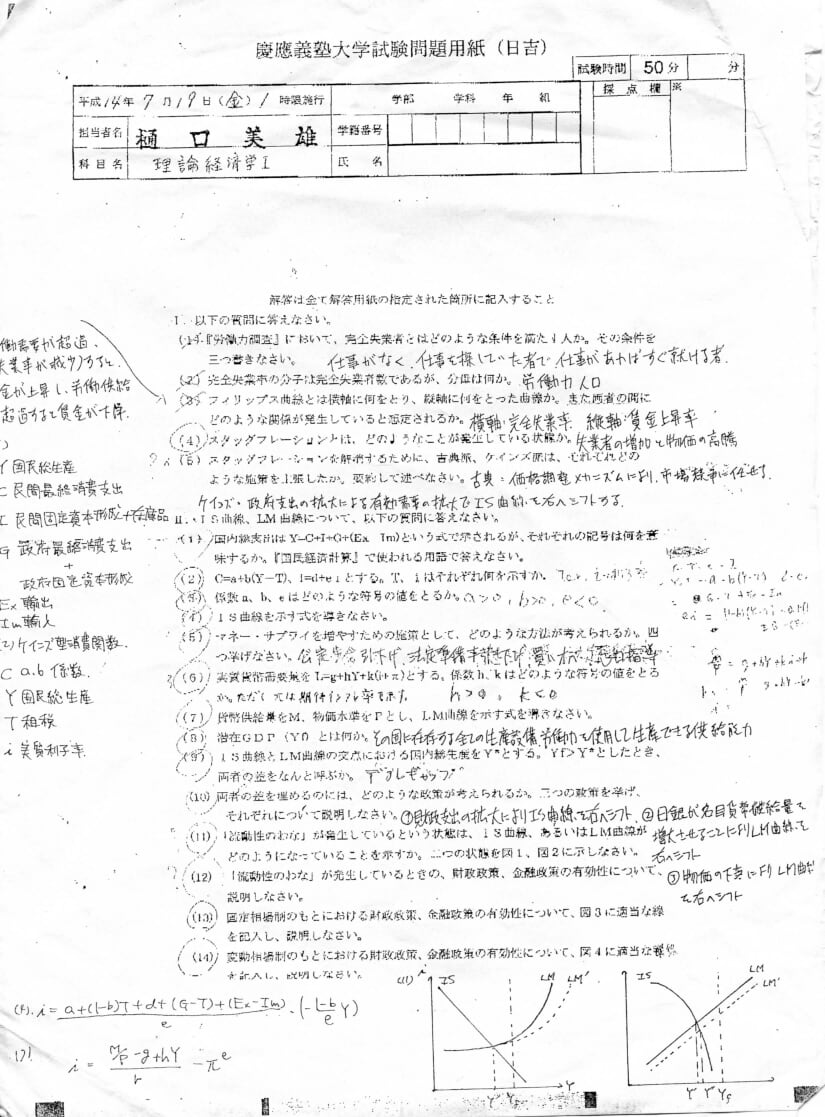 慶應義塾大学試験問題用紙（日吉）
試験時間 50分 分
平成14年7月19日（金）1時限施行 学部 学科 年 組 採点欄 ※
担当者名 樋口美雄 学籍番号
科目名 理論経済学I 氏名
解答は全て解答用紙の指定された箇所に記入すること
I．以下の質問に答えなさい。
(1)『労働力調査』において、完全失業者とはどのような条件を満たす人か。その条件を
三つ書きなさい。 仕事がなく、仕事を探していた者で、仕事があればすぐ就ける者
(2) 完全失業率の分子は完全失業者数であるが、分母は何か。労働力人口
(3) フィリップス曲線とは横軸に何をとり、縦軸に何をとった曲線か。また両者の間に
どのような関係が発生していると想定されるか。横軸 完全失業率 縦軸 賃金上昇率
(4) スタッグフレーションとは、どのようなことが発生している状態か。失業者の増加と物価の高騰
(5) スタッグフレーションを解消するために、古典派、ケインズ派は、それぞれどの
ような施策を主張したか。要約して述べなさい。古典＝価格調整メカニズムにより、市場競争に任せる
ケインズ・政府支出の拡大による有効需要の拡大でIS曲線を右へシフトする
II．IS曲線、LM曲線について、以下の質問に答えなさい。
(1) 国内総支出はY=C+I+G+(Ex－Im)という式で示されるが、それぞれの記号は何を意
味するか。『国民経済計算』で使われる用語で答えなさい。
(2) C=a+b(Y－T)、I=d+eiとする。T、iはそれぞれ何を示すか。
(3) 係数a、b、eはどのような符号の値をとるか。a>0, b>0, e<0
(4) IS曲線を示す式を導きなさい。
(5) マネー・サプライを増やすための施策として、どのような方法が考えられるか。四
つ挙げなさい。公定歩合引下げ、法定準備率引き下げ、買いオペ、窓口指導
(6) 実質貨幣需要量をL=g+hY+k(i+π)とする。係数h、kはどのような符号の値をとる
か。ただしπは期待インフレ率を示す h>0, k<0
(7) 貨幣供給量をM、物価水準をPとし、LM曲線を示す式を導きなさい。
(8) 潜在GDP（Yf）とは何か。その国に存在する全ての生産設備、労働力を使用して生産できる供給能力
(9) IS曲線とLM曲線の交点における国内総生産をY*とする。Yf>Y*としたとき、
両者の差をなんと呼ぶか。デフレギャップ
(10) 両者の差を埋めるのには、どのような政策が考えられるか。三つの政策を挙げ、
それぞれについて説明しなさい。①財政支出の拡大によりIS曲線を右へシフト、②日銀が名目貨幣供給量を
増大させることによりLM曲線を
右へシフト
③物価の下落によりLM曲線
を右へシフト
(11)「流動性のわな」が発生しているという状態は、IS曲線、あるいはLM曲線が
どのようになっていることを示すか。二つの状態を図1、図2に示しなさい。
(12) 「流動性のわな」が発生しているときの、財政政策、金融政策の有効性について、
説明しなさい。
(13) 固定相場制のもとにおける財政政策、金融政策の有効性について、図3に適当な線
を記入し、説明しなさい。
(14) 変動相場制のもとにおける財政政策、金融政策の有効性について、図4に適当な線
を記入し、説明しなさい。
働需要が超過、
失業率が減少すると、
金が上昇し、労働供給
超過すると賃金が下降。
Y 国民総生産
C 民間最終消費支出
I 民間固定資本形成＋在庫品
G 政府最終消費支出
＋
政府固定資本形成
Ex 輸出
Im 輸入
(2) ケインズ型消費関数
C a.b 係数
Y 国民総生産
T 租税
i 実質利子率
(4). i = a+(1-b)T+d+(G-T)+(Ex-Im) / e ・(-1-b/e Y)
(7) i = M/P -g+hY / k - π^e
(11) i IS LM LM' Y Y' Yf Y
IS LM LM' Y Y' Yf